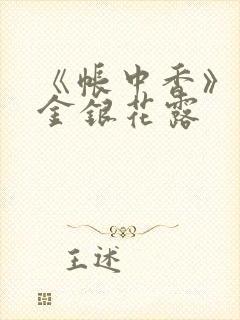 《帐中香》
金银花露
王述